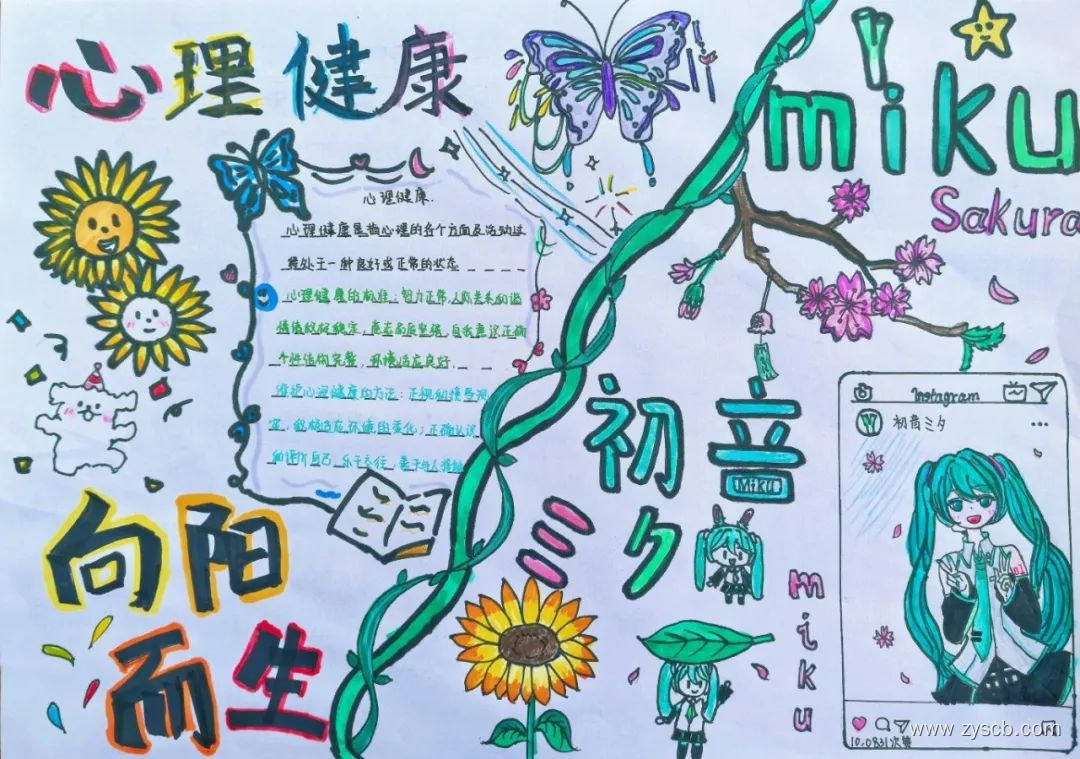 心理健康
心理健康.
心理健康是指心理的各个方面及活动过
程处于一种良好或正常的状态
心理健康的标准：智力正常，人际关系和谐
情绪
自我意识正确
个性结构完整，环境适应良好.
维护心理健康的方法：正视和接受现
实，积极适应环境的变化；正确认识
和评价自己，乐于交往，善于与人
向阳
而生
miku
Sakura
初音
Miku
ミク
miku
Instagram
初音ミク
01
10,0831次赞
www.zyscb.com